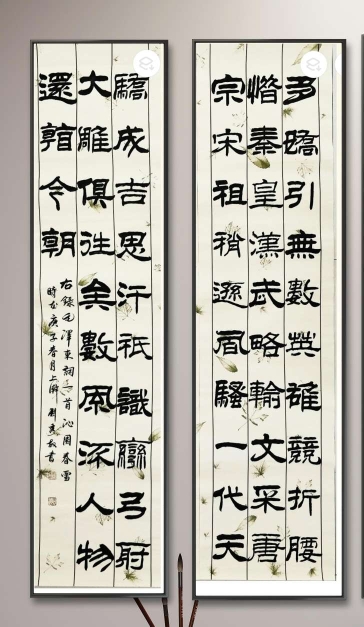 多嬌引無數英雄競折腰
惜秦皇漢武略輸文采唐
宗宋祖稍遜風騷一代天
驕成吉思汗祇識彎弓射
大雕俱往矣數風流人物
還看今朝
右錄毛澤東詞一首沁園春雪
時在庚子春月上澣劉書